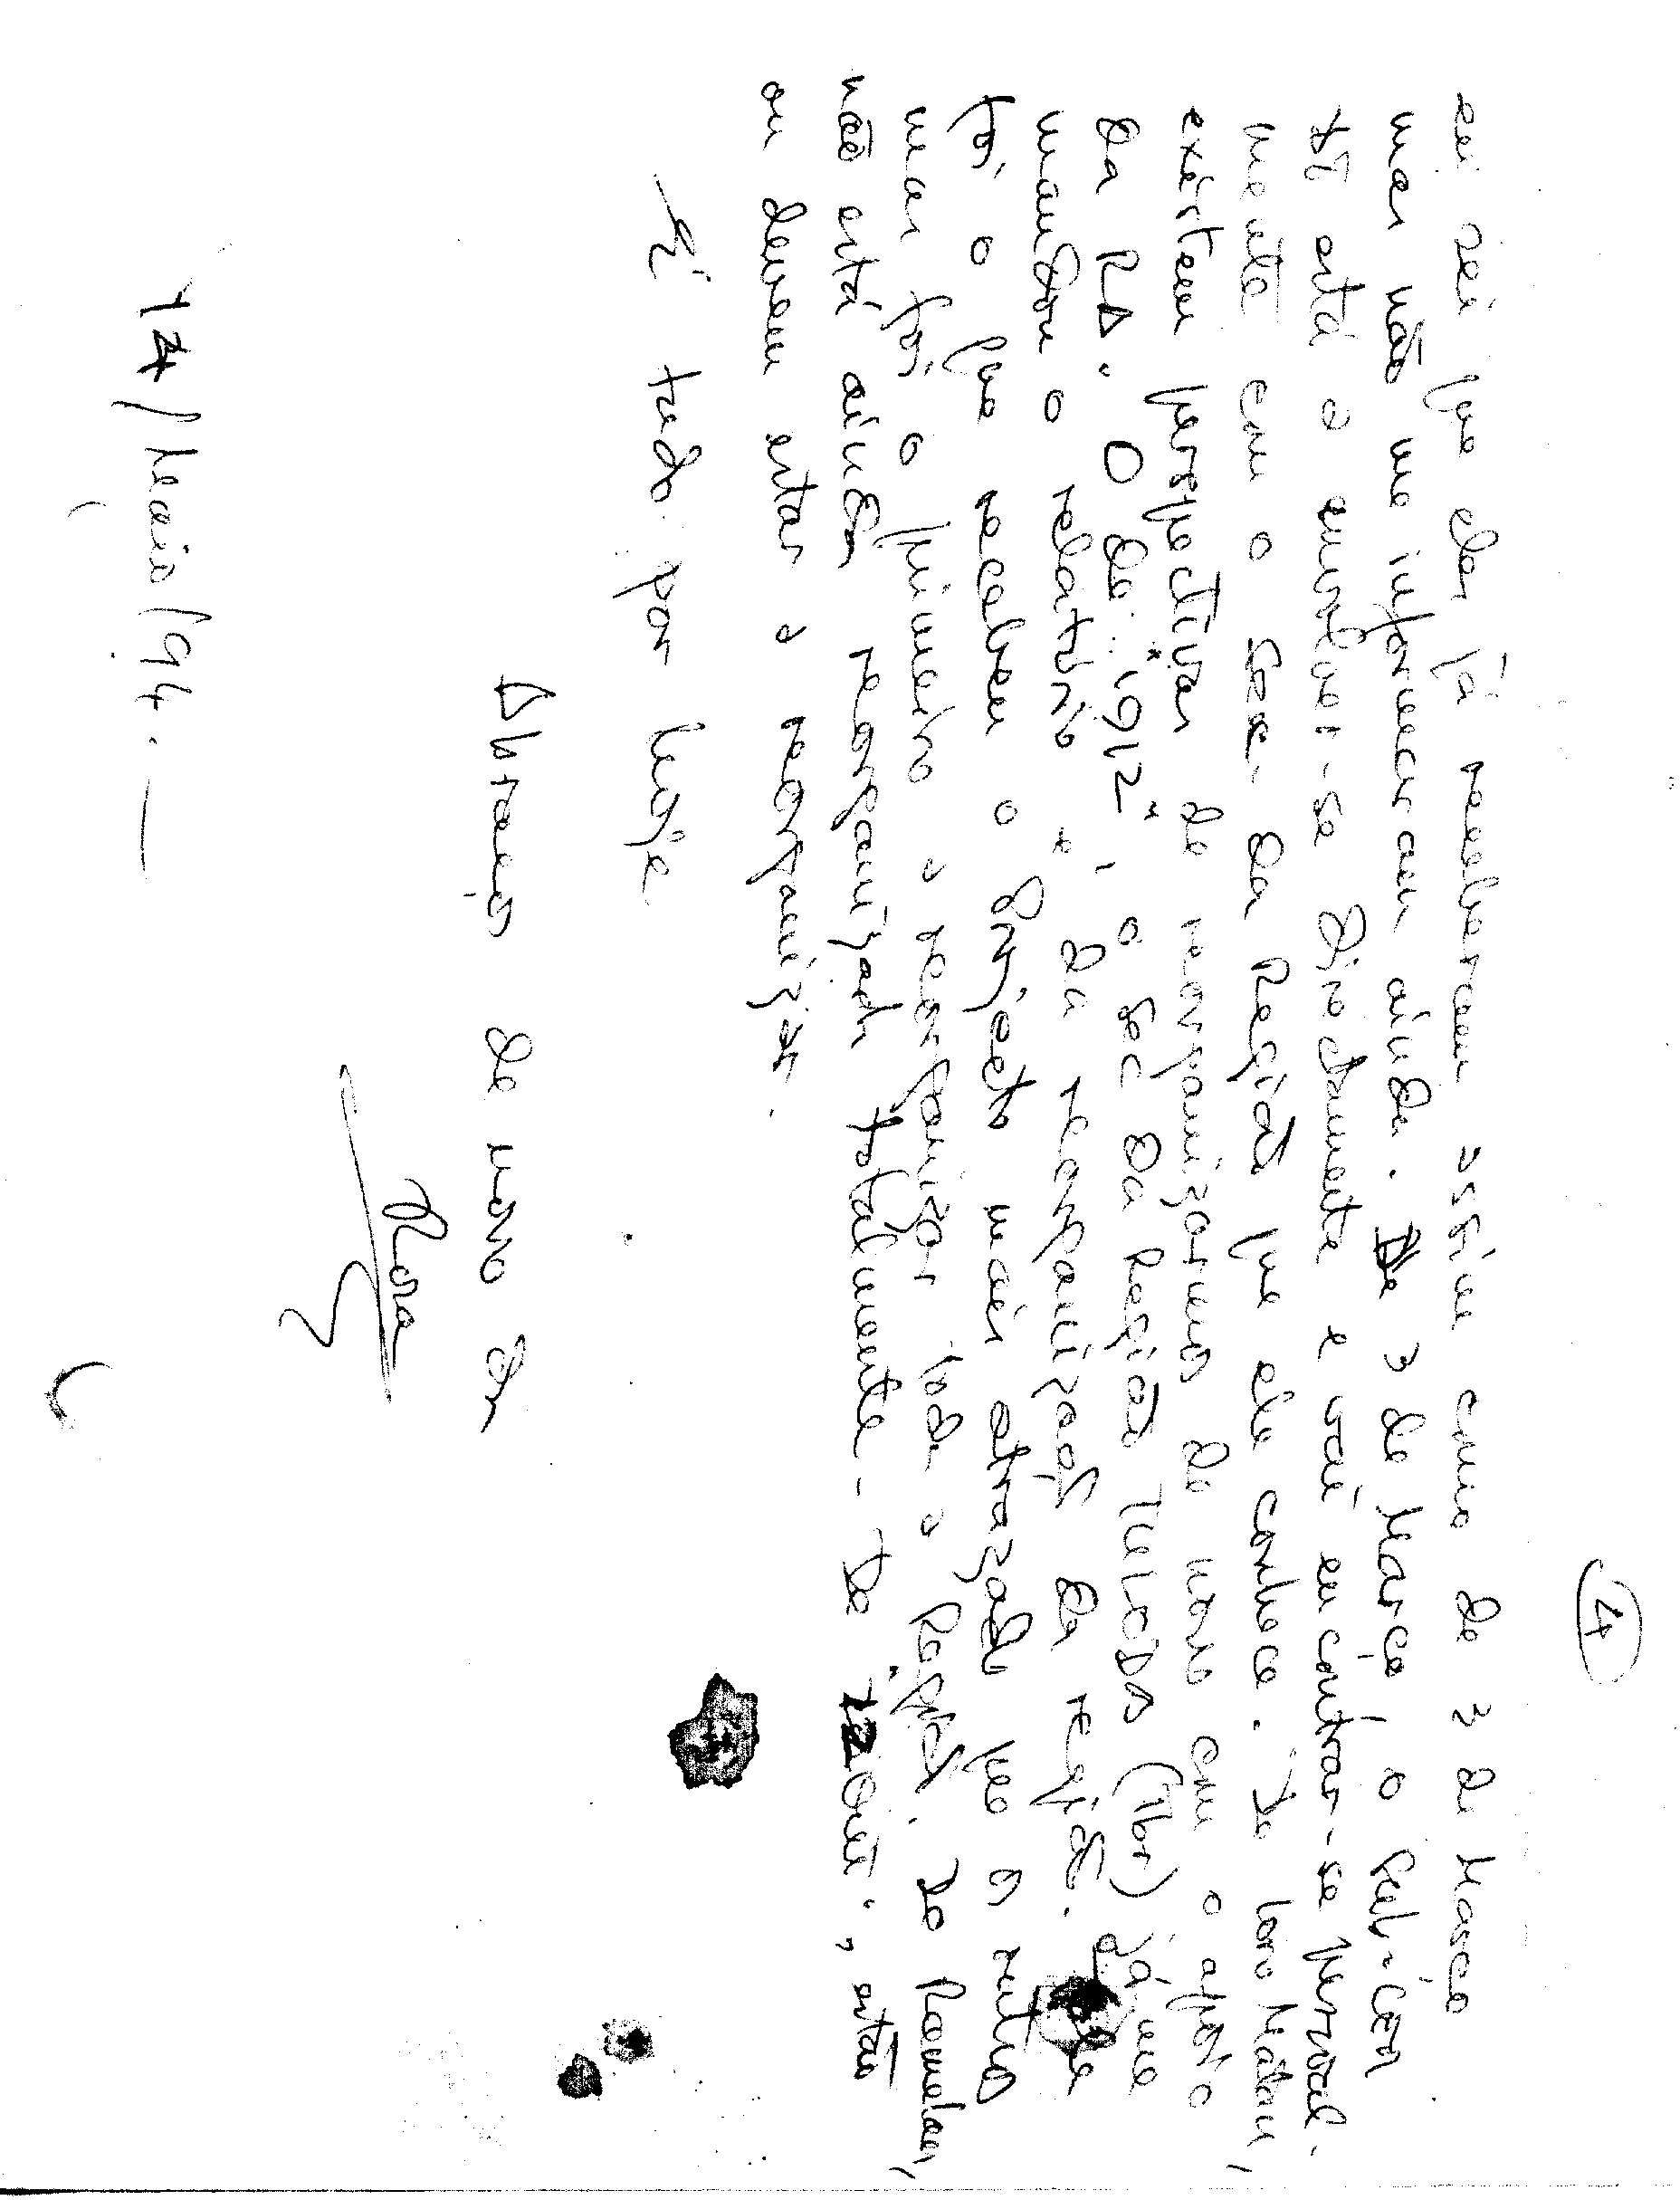 4
eu sei que eles já receberam assim como de 3 de Março
mas não me informaram ainda. De 3 de Março o
tº está a envolver-se directamente e vai encontrar-se pessoal-
mente com o Sec. da Região que ele conhece. De
existem perspectivas de reorganizarmos de novo com o apoio
da RD. O de "1912", o sec da Região (Tbr) já me
mandou o relatório e da reorganização da região.
foi o que recebeu o Projecto mais atrazado que os outros
mas foi o primeiro a reorganizar toda a Região. De Ramelau,
não está ainda reorganizada totalmente. De estão
ou devem estar a reorganizar.
É tudo por hoje
Abraços de novo do
17/Março/94.